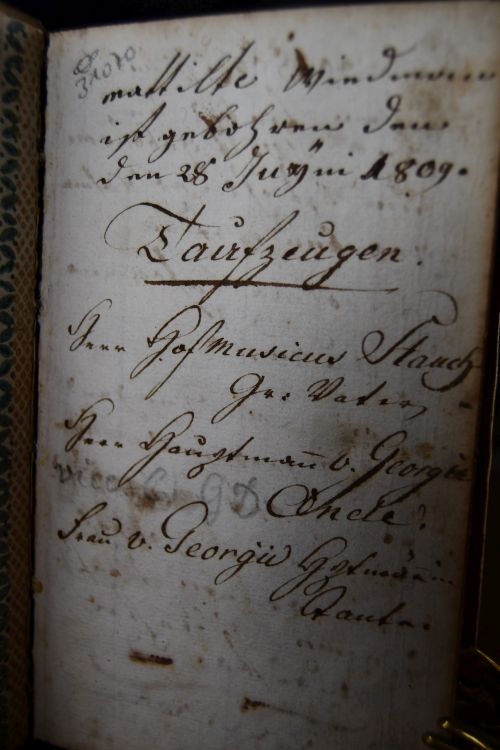 31070
Mattilte Wiedmann
ist gebohren den
den 28 Juÿni 1809.
Taufzeugen.
Herr Hofmusicus Stauch
Gr: Vater
Herr Hauptmañ v. Georgii
G D. Oncle.
Frau v. Georgii
Tante.